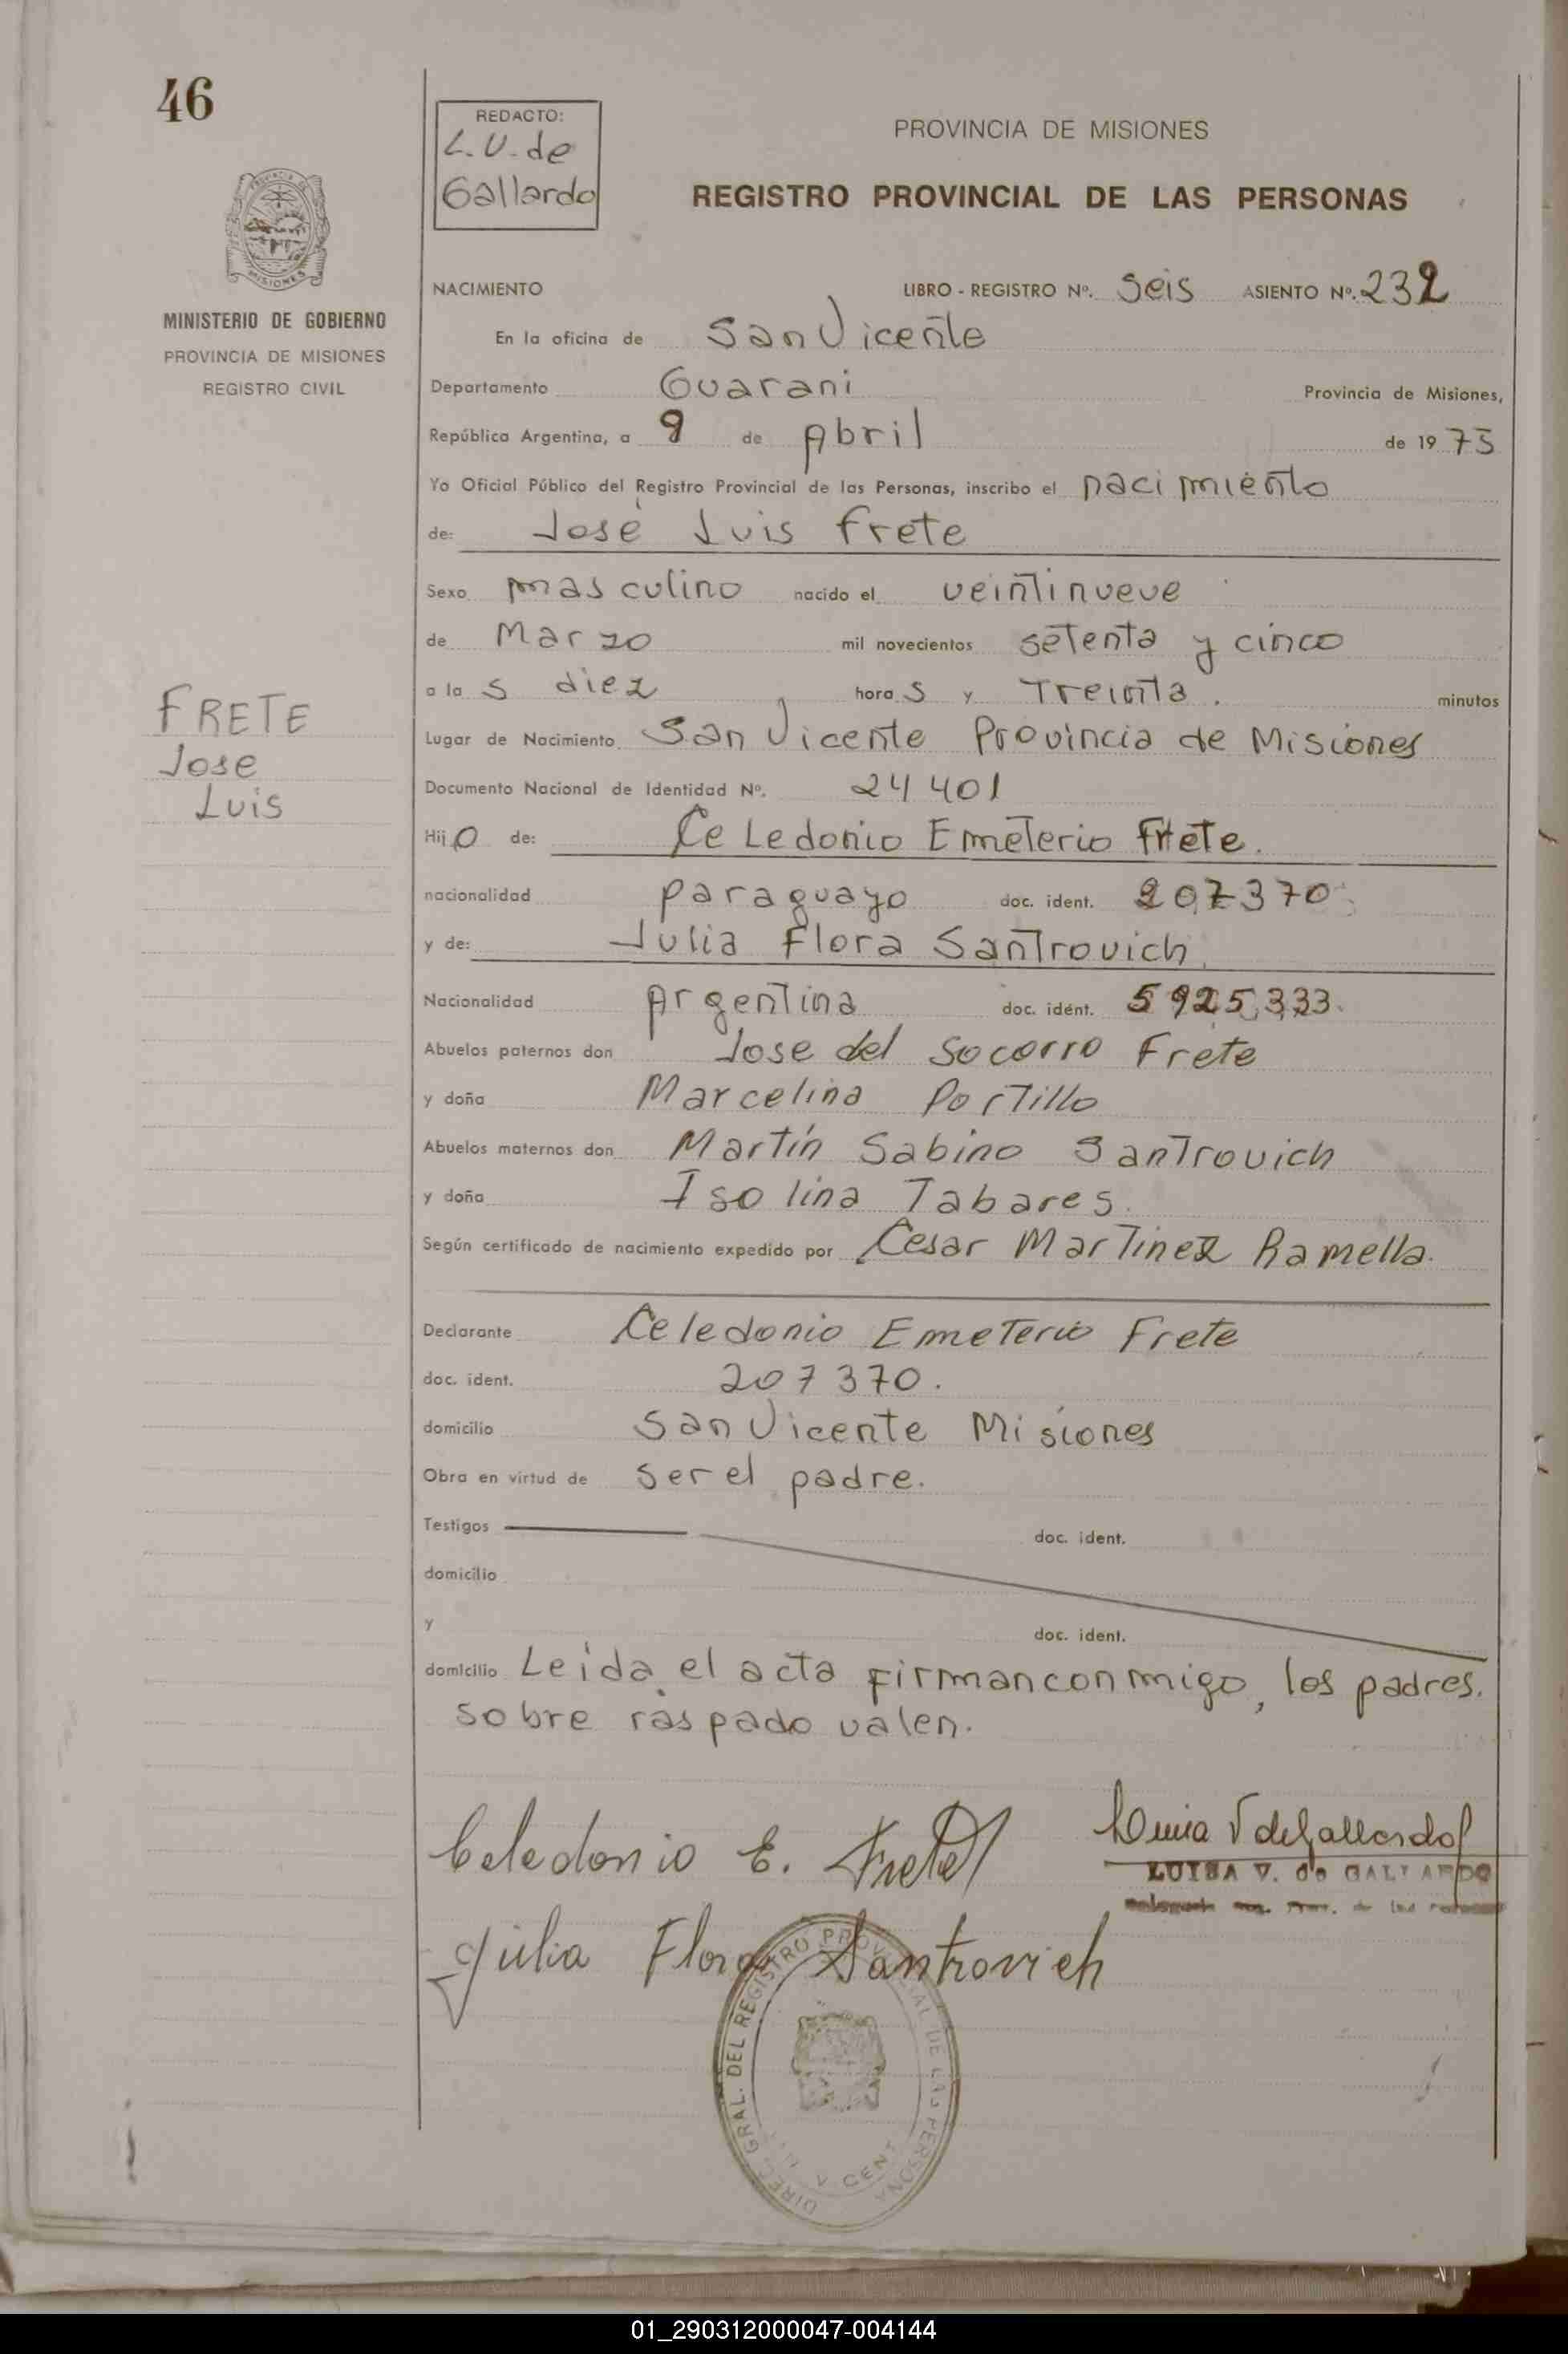 46
REDACTO:
L.V. de
Gallardo
PROVINCIA DE MISIONES
REGISTRO PROVINCIAL DE LAS PERSONAS
MINISTERIO DE GOBIERNO
PROVINCIA DE MISIONES
REGISTRO CIVIL
NACIMIENTO LIBRO - REGISTRO Nº. Seis ASIENTO Nº. 232
En la oficina de San Vicente
Departamento Guarani Provincia de Misiones,
República Argentina, a 9 de Abril de 19 75
Yo Oficial Público del Registro Provincial de las Personas, inscribo el nacimiento
de: José Luis Frete
Sexo masculino nacido el veintinueve
de Marzo mil novecientos setenta y cinco
a la s diez hora s y Treinta. minutos
FRETE
Jose
Luis
Lugar de Nacimiento San Vicente Provincia de Misiones
Documento Nacional de Identidad Nº. 24 401
Hij o de: Celedonio Emeterio Frete.
nacionalidad paraguayo doc. ident. 207370
y de: Julia Flora Santrovich
Nacionalidad Argentina doc. idént. 5925,333.
Abuelos paternos don Jose del Socorro Frete
y doña Marcelina Portillo
Abuelos maternos don Martín Sabino Santrovich
y doña Isolina Tabares.
Según certificado de nacimiento expedido por Cesar Martinez Ramella.
Declarante Celedonio Emeterio Frete
doc. ident. 207370.
domicilio San Vicente Misiones
Obra en virtud de ser el padre.
Testigos doc. ident.
domicilio
y doc. ident.
domicilio Leida el acta firman conmigo, los padres.
sobre raspado valen.
Celedonio E. Frete
Luisa V de Gallardo
LUISA V. de GALLARDO
Julia Flora Santrovich
DIREC. GRAL. DEL REGISTRO PROVINCIAL DE LAS PERSONAS
01_290312000047-004144